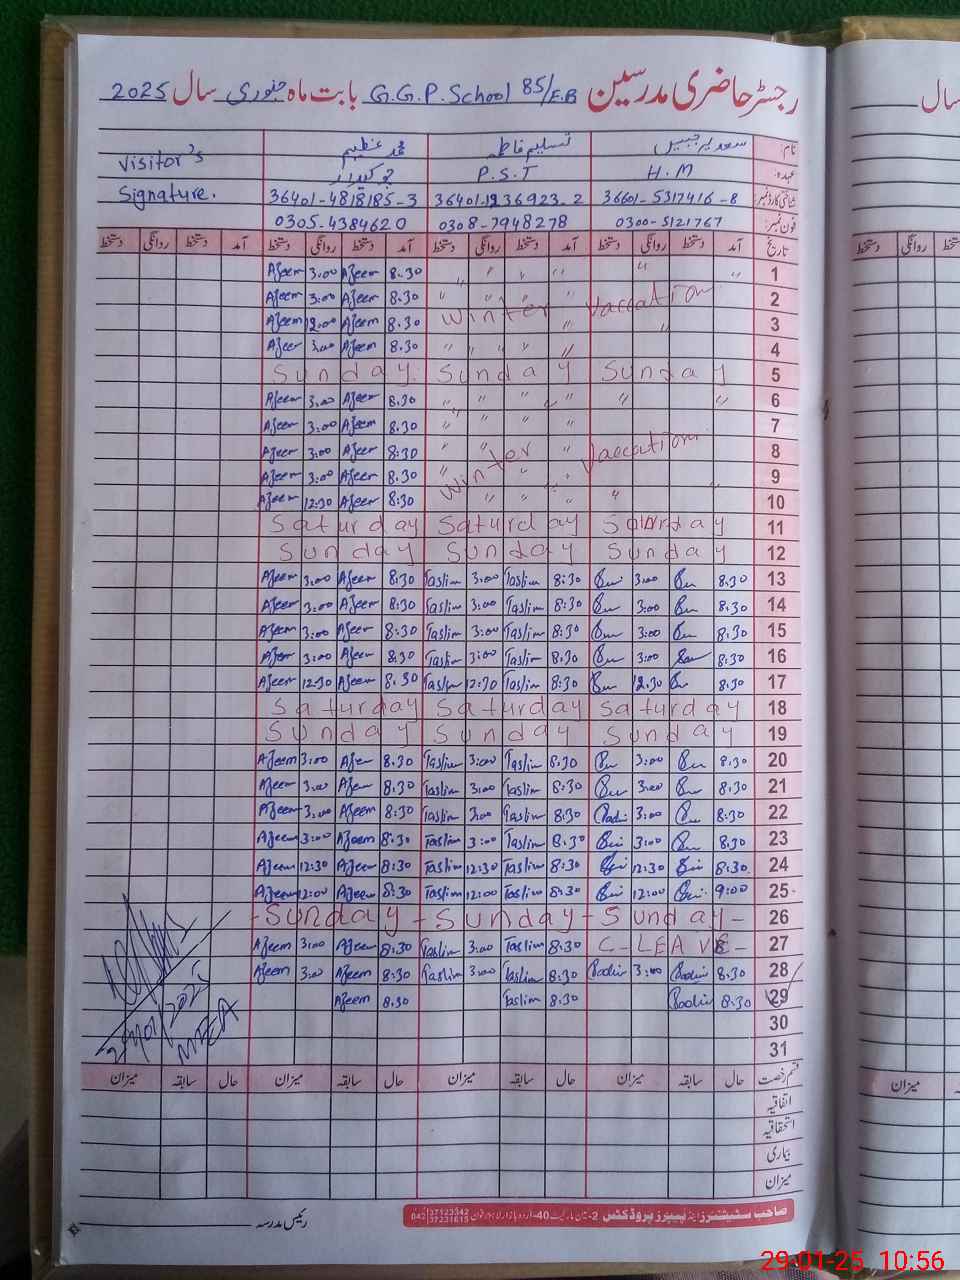 رجسٹر حاضری مدرسین G.G.P.School 85/E.B بابت ماہ جنوری سال 2025
سال
نام: سعدیہ جبیں تسلیم فاطمہ محمد عظیم Visitor's
عہدہ: H.M P.S.T چوکیدار Signature.
شناختی کارڈ نمبر: 36601-5317416-8 36401-1236923-2 36401-4818185-3
فون نمبر: 0300-5121767 0308-7948278 0305-4384620
تاریخ آمد دستخط روانگی دستخط آمد دستخط روانگی دستخط آمد دستخط روانگی دستخط آمد دستخط روانگی دستخط
Azeem 3:00 Azeem 8:30 〃 〃 〃 〃 〃 〃 1
Azeem 3:00 Azeem 8:30 〃 〃 〃 〃 2
Winter Vaccation
Azeem 12:00 Azeem 8:30 〃 〃 3
Azeer 3:00 Azeem 8:30 〃 〃 〃 〃 4
Sunday Sunday Sunday 5
Azeem 3:00 Azeem 8:30 〃 〃 〃 〃 〃 〃 6
Azeem 3:00 Azeem 8:30 〃 〃 〃 7
Azeem 3:00 Azeem 8:30 〃 〃 〃 〃 8
Winter Vaccation
Azeem 3:00 Azeem 8:30 〃 〃 〃 9
Azeem 12:30 Azeem 8:30 〃 〃 〃 〃 10
Saturday Saturday Saturday 11
Sunday Sunday Sunday 12
Azeem 3:00 Azeem 8:30 Taslim 3:00 Taslim 8:30 3:00 8:30 13
Azeem 3:00 Azeem 8:30 Taslim 3:00 Taslim 8:30 3:00 8:30 14
Azeem 3:00 Azeem 8:30 Taslim 3:00 Taslim 8:30 3:00 8:30 15
Azem 3:00 Azeem 8:30 Taslim 3:00 Taslim 8:30 3:00 8:30 16
Azeem 12:30 Azeem 8:30 Taslim 12:30 Taslim 8:30 12:30 8:30 17
Saturday Saturday Saturday 18
Sunday Sunday Sunday 19
Azeem 3:00 Azem 8:30 Taslim 3:00 Taslim 8:30 3:00 8:30 20
Azeem 3:00 Azem 8:30 Taslim 3:00 Taslim 8:30 3:00 8:30 21
Azeem 3:00 Azeem 8:30 Taslim 3:00 Taslim 8:30 3:00 8:30 22
Azeem 3:00 Azeem 8:30 Taslim 3:00 Taslim 8:30 3:00 8:30 23
Azeem 12:30 Azeem 8:30 Taslim 12:30 Taslim 8:30 12:30 8:30 24
Azeem 12:00 Azeem 8:30 Taslim 12:00 Taslim 8:30 12:00 9:00 25
-Sunday-Sunday-Sunday- 26
Azeem 3:00 Azeem 8:30 Taslim 3:00 Taslim 8:30 C-LEAVE- 27
Azeem 3:00 Azeem 8:30 Taslim 3:00 Taslim 8:30 3:00 8:30 28
Azeem 8:30 Taslim 8:30 8:30 29
30
MEA
31
قسم رخصت حال سابقہ میزان حال سابقہ میزان حال سابقہ میزان حال سابقہ میزان
میزان
اتفاقیہ
استحقاقیہ
بیماری
میزان
رئیس مدرسہ
صاحب سٹیشنرز اینڈ پیپرز پروڈکٹس
042 37123342 37231615
29-01-25 10:56